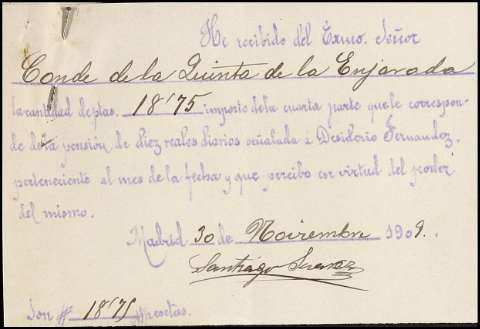 He recibido del Exmo. Señor
Conde de la Quinta de la Enjarada
la cantidad de ptas. 18'75 importe de la cuarta parte que le correspon-
de de la pension de diez reales diarios señalada á Desiderio Fernandez,
perteneciente al mes de la fecha y que percibo en virtud del poder
del mismo.
Madrid 30 de Noviembre 1909.
Santiago Suarez
Son # 18'75 # pesetas.